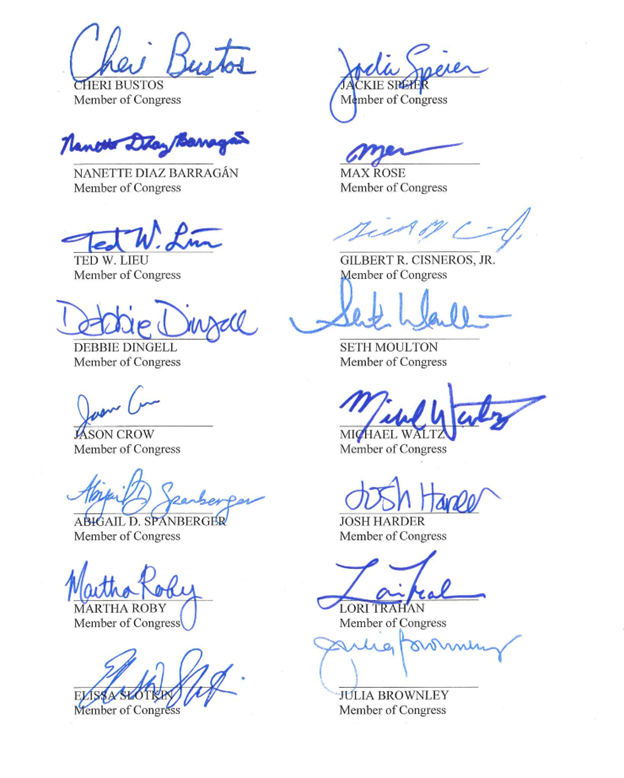 Cheri Bustos
CHERI BUSTOS
Member of Congress
Jackie Speier
JACKIE SPEIER
Member of Congress
Nanette Diaz Barragán
NANETTE DIAZ BARRAGÁN
Member of Congress
MAX ROSE
Member of Congress
Ted W. Lieu
TED W. LIEU
Member of Congress
GILBERT R. CISNEROS, JR.
Member of Congress
Debbie Dingell
DEBBIE DINGELL
Member of Congress
Seth Moulton
SETH MOULTON
Member of Congress
Jason Crow
JASON CROW
Member of Congress
Michael Waltz
MICHAEL WALTZ
Member of Congress
Abigail D Spanberger
ABIGAIL D. SPANBERGER
Member of Congress
Josh Harder
JOSH HARDER
Member of Congress
Martha Roby
MARTHA ROBY
Member of Congress
Lori Trahan
LORI TRAHAN
Member of Congress
ELISSA SLOTKIN
Member of Congress
Julia Brownley
JULIA BROWNLEY
Member of Congress